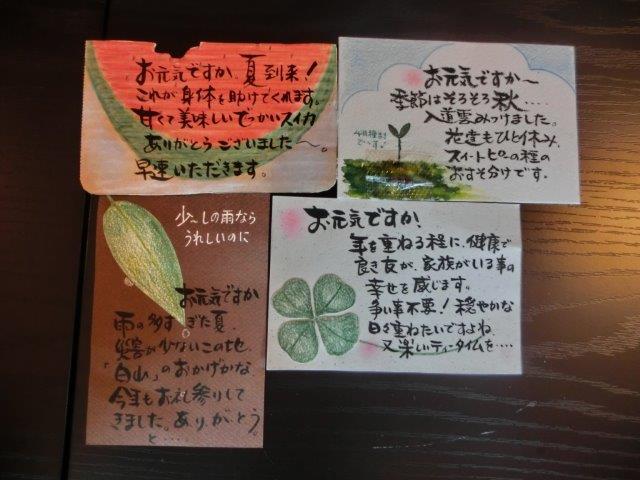 お元気ですか、夏到来!
これが身体を助けてくれます。
甘くて美味しいでっかいスイカ
ありがとうございました〜。
早速いただきます。
お元気ですか〜
季節はそろそろ秋....
入道雲みつけました。
花達もひと休み、
スイートピーの種の
おすそ分けです。
です!
少〜しの雨なら
うれしいのに
お元気ですか
雨の多すぎた夏、
災害が少ないこの地、
「白山」のおかげかな
今年もお礼参りして
きました。ありがとう
と....
お元気ですか、
年を重ねる程に、健康で
良き友が、家族がいる事の
幸せを感じます。
争い事不要!穏やかな
日々重ねたいですよね、
又楽しいティータイムを....